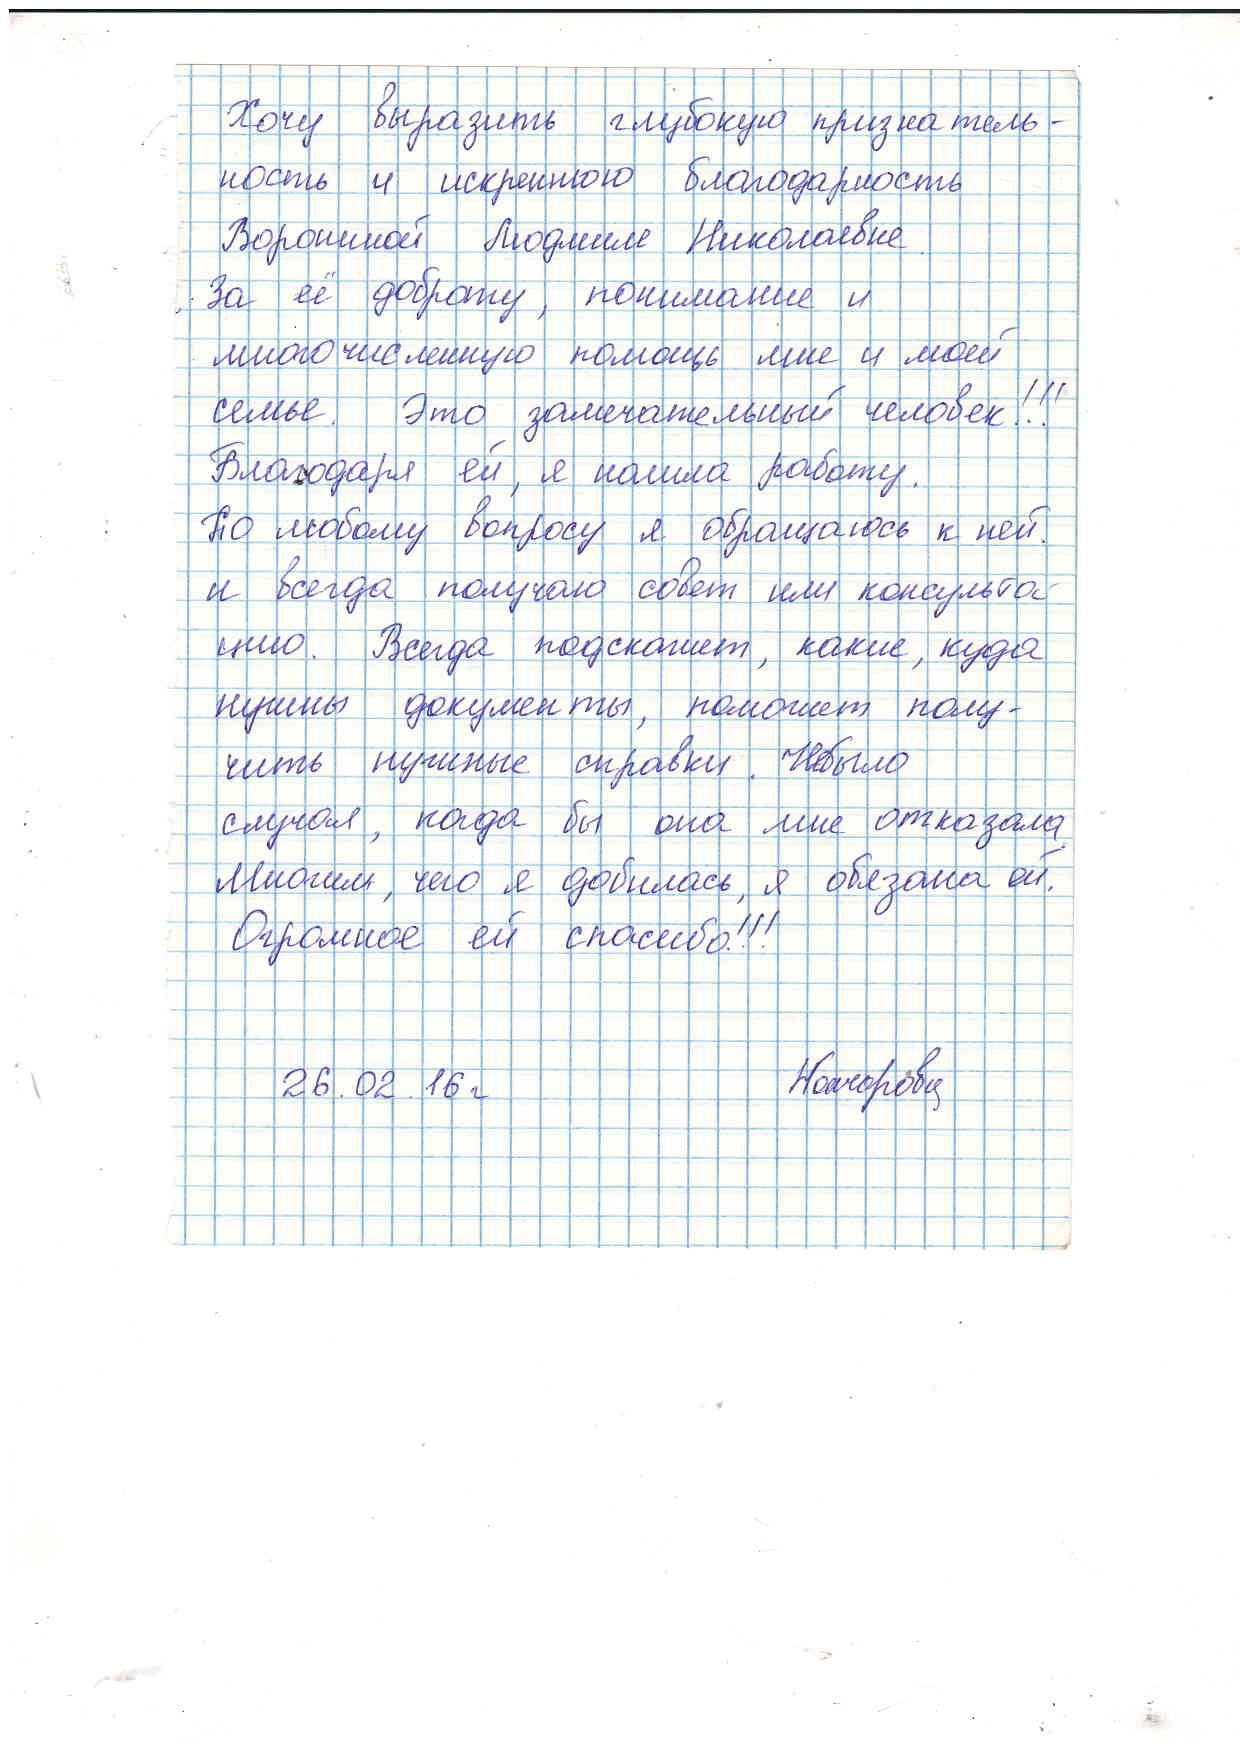 Хочу выразить глубокую признатель-
ность и искреннюю благодарность
Ворониной Людмиле Николаевне
За её доброту, понимание и
многочисленную помощь мне и моей
семье. Это замечательный человек!!!
Благодаря ей, я нашла работу.
По любому вопросу я обращаюсь к ней.
и всегда получаю совет или консульта-
цию. Всегда подскажет, какие, куда
нужны документы, поможет полу-
чить нужные справки. Небыло
случая, когда бы она мне отказала.
Многим, чего я добилась, я обязана ей.
Огромное ей спасибо!!!
26.02.16г